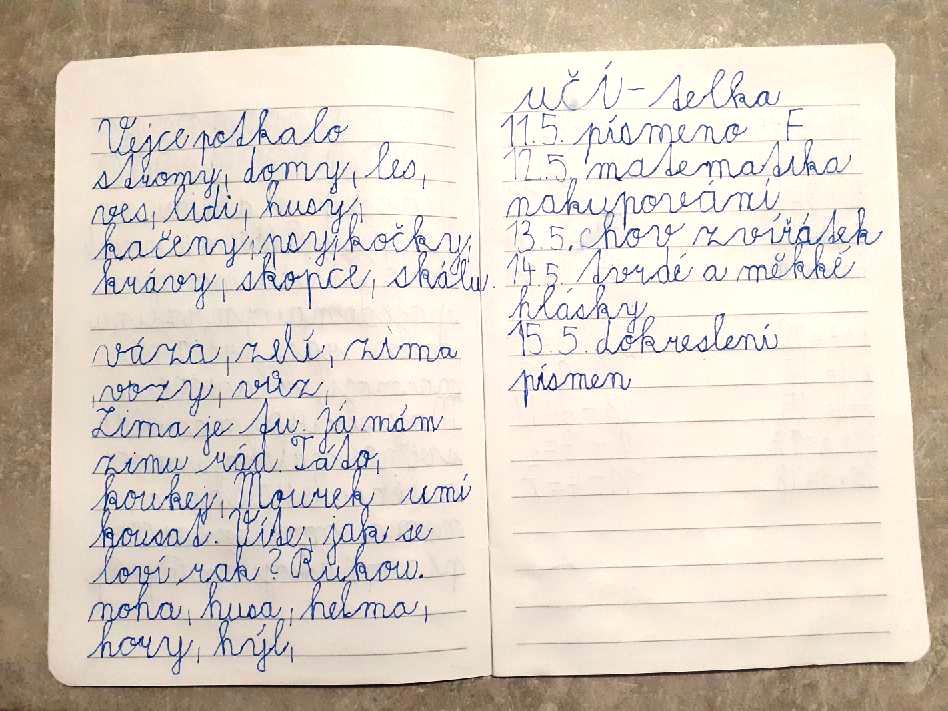 Vejce potkalo
stromy, domy, les,
ves, lidi, husy,
kačeny, psy, kočky,
krávy, skopce, skálu.
váza, zelí, zima
vozy, vůz,
Zima je tu. Já mám
zimu rád. Táto,
koukej, Mourek umí
kousat. Víte, jak se
loví rak? Rukou.
noha, husa, helma,
hory, hýl,
učí - telka
11.5. písmeno F
12.5. matematika
nakupování
13.5. chov zvířátek
14.5. tvrdé a měkké
hlásky
15.5. dokreslení
písmen